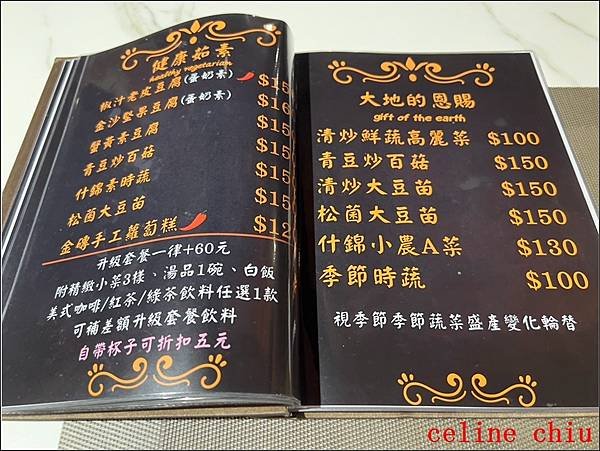 健康茹素
healthy vegetarian
椒汁老皮豆腐(蛋奶素) $15
金沙堅果豆腐(蛋奶素) $16
蟹黃素豆腐 $15
青豆炒百菇 $15
什錦素時蔬 $15
松菌大豆苗 $15
金磚手工蘿蔔糕 $12
升級套餐一律+60元
附精緻小菜3樣、湯品1碗、白飯
美式咖啡/紅茶/綠茶飲料任選1款
可補差額升級套餐飲料
自帶杯子可折扣五元
大地的恩賜
gift of the earth
清炒鮮蔬高麗菜 $100
青豆炒百菇 $150
清炒大豆苗 $150
松菌大豆苗 $150
什錦小農A菜 $130
季節時蔬 $100
視季節季節蔬菜盛產變化輪替
celine chiu